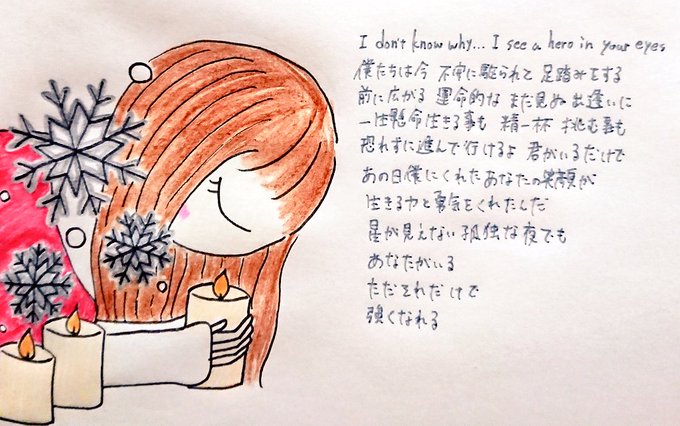 I don't know why... I see a hero in your eyes
僕たちは今 不安に駆られて 足踏みをする
前に広がる 運命的な まだ見ぬ出逢いに
一生懸命生きる事も 精一杯 挑む事も
恐れずに進んで行けるよ 君がいるだけで
あの日僕にくれたあなたの笑顔が
生きる力と勇気をくれたんだ
星が見えない孤独な夜でも
あなたがいる
ただそれだけで
強くなれる